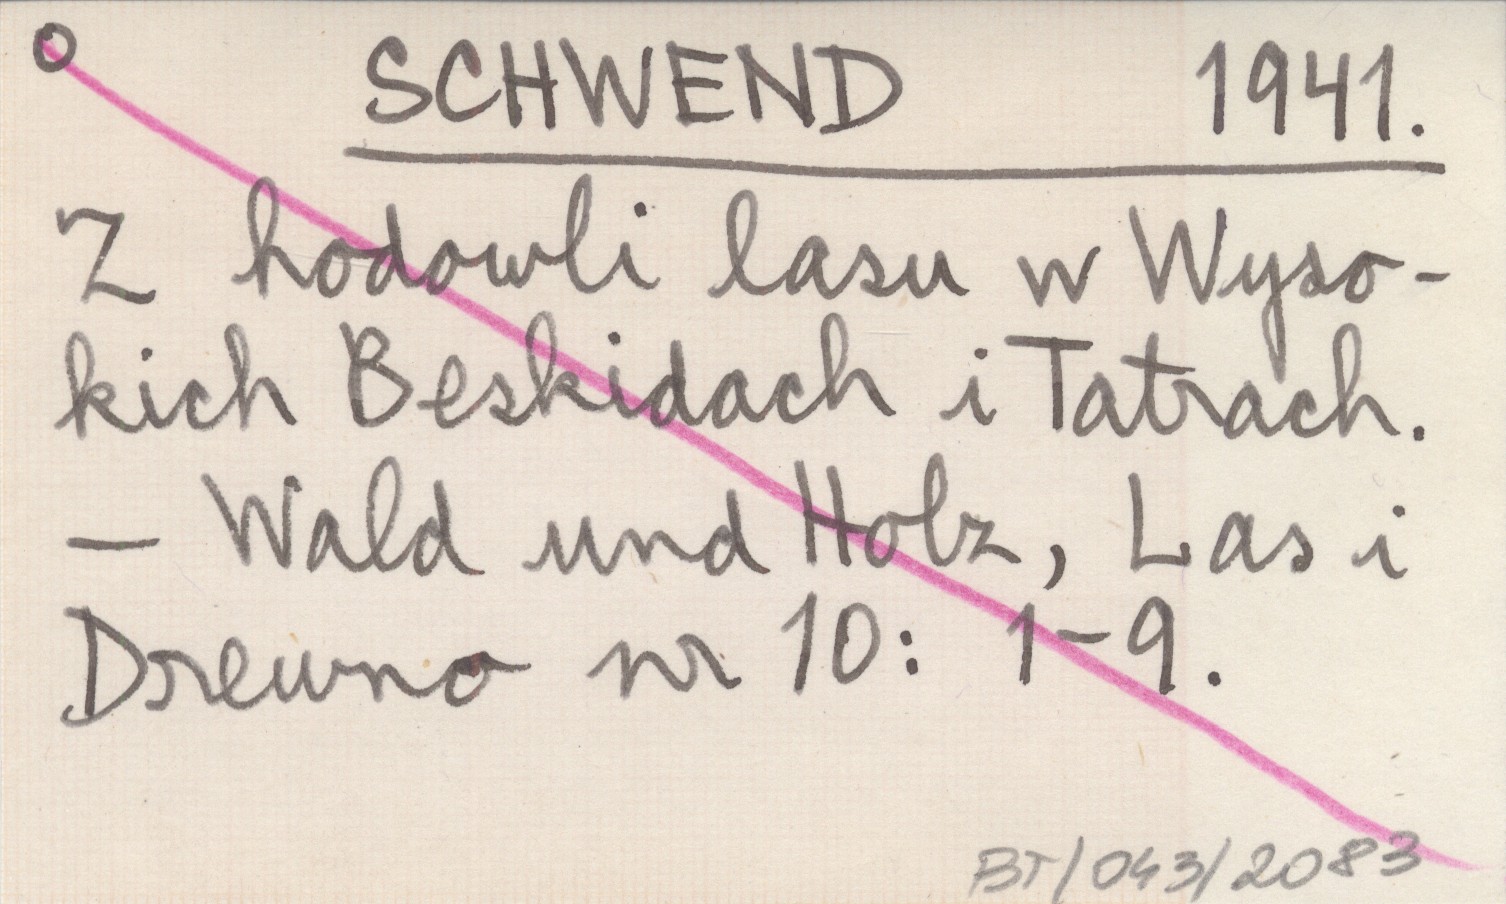 SCHWEND 1941.
Z hodowli lasu w Wyso-
kich Beskidach i Tatrach.
— Wald und Holz, Las i
Drewno nr 10: 1-9.
BT/043/2083